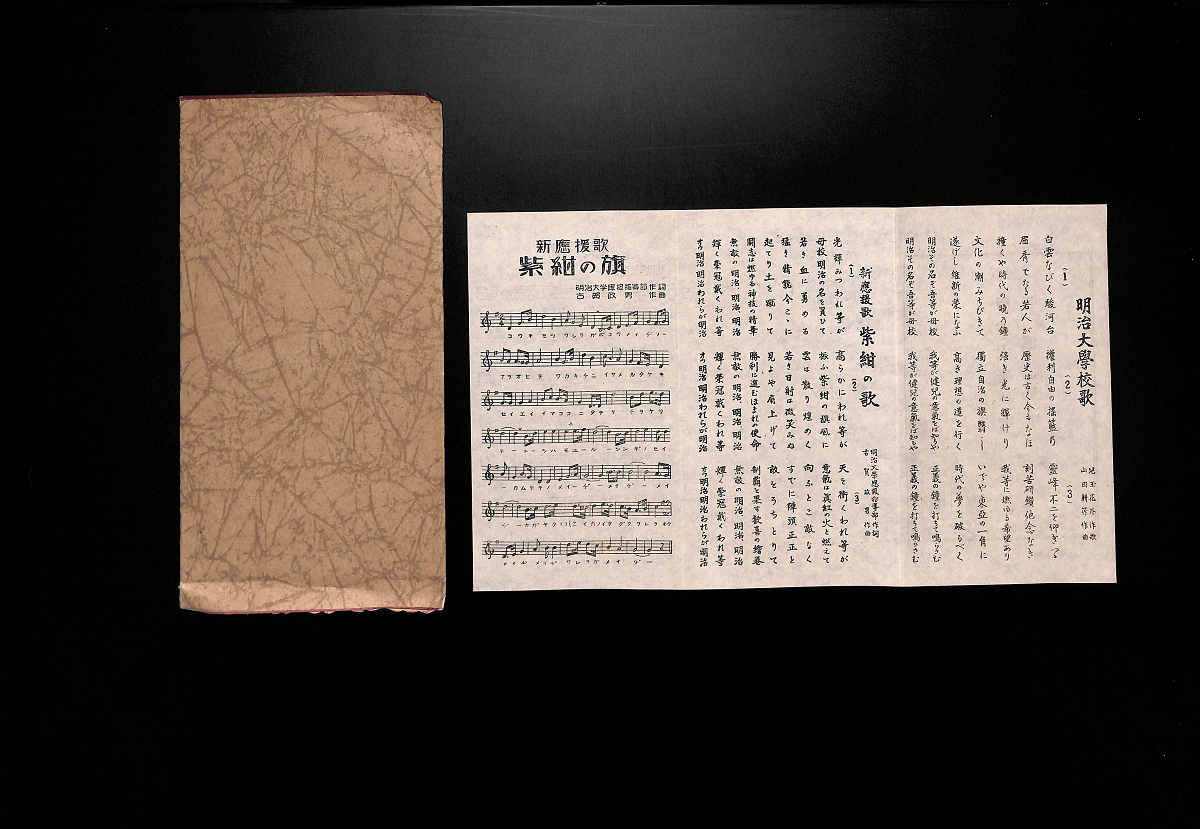 明治大學校歌
児玉花外作歌
山田耕筰作曲
(1)
白雲なびく駿河台
眉秀でたる若人が
撞くや時代の暁の鐘
文化の潮みちびきて
遂げし維新の榮になふ
明治その名ぞ吾等が母校
明治その名ぞ吾等が母校
(2)
權利自由の揺籃の
歴史は古く今もなほ
強き光に輝けり
獨立自治の旗翳し
高き理想の道を行く
我等が健兒の意氣をば知るや
我等が健兒の意氣をば知るや
(3)
靈峰不二を仰ぎつゝ
刻苦研鑽他念なき
我等に燃ゆる希望あり
いでや東亞の一角に
時代の夢を破るべく
正義の鐘を打ちて鳴らさむ
正義の鐘を打ちて鳴らさむ
新應援歌 紫紺の歌
明治大学應援指導部作詞
古賀政男作曲
(1)
光輝みつわれ等が
母校明治の名を負ひて
若き血に勇める
猛き精鋭今ここに
起てり土を蹴りて
闘志は燃ゆる神技の精華
無敵の明治、明治、明治
輝く榮冠戴くわれ等
オゝ明治明治われらが明治
(2)
高らかにわれ等が
振ふ紫紺の旗風に
雲は散り煌めく
若き日射は微笑みぬ
見よや肩上げて
勝利に進むほまれの使命
無敵の明治、明治、明治
輝く榮冠戴くわれ等
オゝ明治明治われらが明治
(3)
天を衝くわれ等が
意氣は眞紅の火と燃えて
向ふところ敵なく
すでに陣頭正正と
敵をうちとりて
制覇を果す歓喜の繪巻
無敵の明治、明治、明治
輝く榮冠戴くわれ等
オゝ明治明治われらが明治
新應援歌
紫紺の旗
明治大学應援指導部作詞
古賀政男作曲
コウキ ミツ ワレラガ ボコウメイヂノー
ナヲオヒテ ワカキチニ イサメル タケキ
セイエイ イマココニ タテリ ツチヲケリ